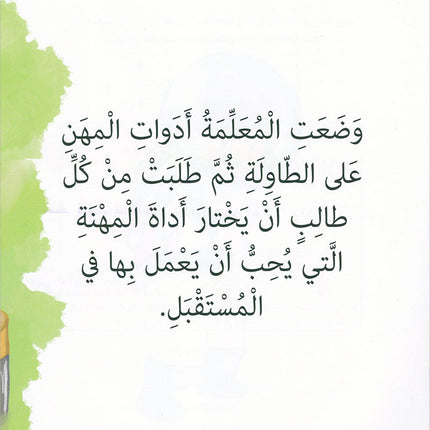 وَضَعَتِ الْمُعَلِّمَةُ أَدَواتِ الْمِهَنِ
عَلى الطّاوِلَةِ ثُمَّ طَلَبَتْ مِنْ كُلِّ
طالِبٍ أَنْ يَخْتارَ أَداةَ الْمِهْنَةِ
الَّتي يُحِبُّ أَنْ يَعْمَلَ بِها في
الْمُسْتَقْبَلِ.